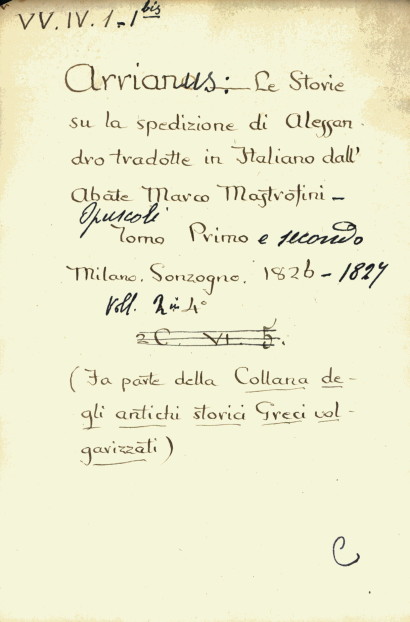 VV. IV. 1-1 bis
Arrianus: Le Storie
su la spedizione di Alessan
dro tradotte in Italiano dall'
Abate Marco Mastrofini –
Opuscoli
Tomo Primo e secondo
Milano. Sonzogno. 1826 – 1827
Voll. 2 in 4°
2 C. VI. 5.
(Fa parte della Collana de-
gli antichi storici Greci vol-
garizzati)
C